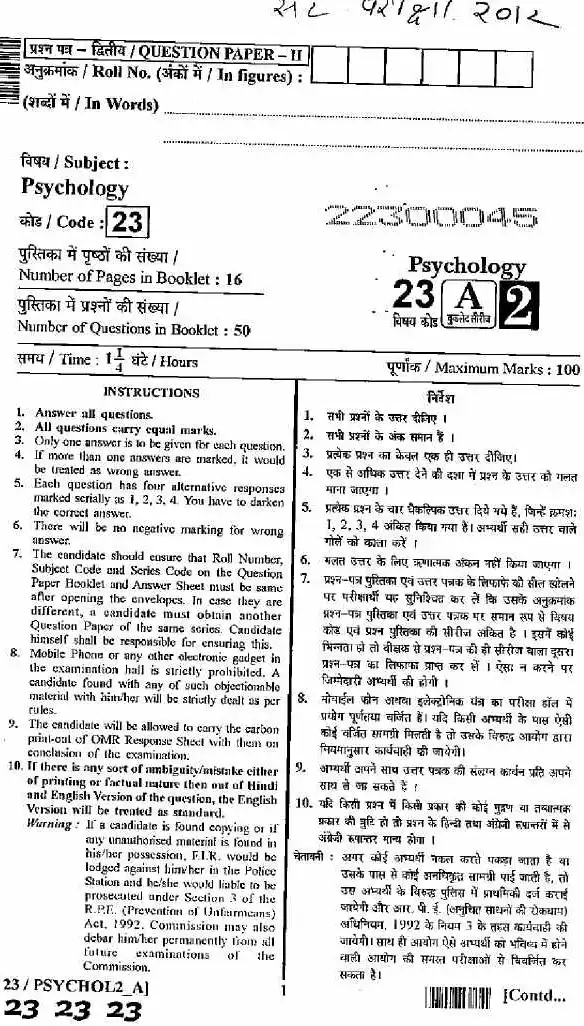 सेट परीक्षा 2012
प्रश्न पत्र – द्वितीय / QUESTION PAPER – II
अनुक्रमांक / Roll No. (अंकों में / In figures) :
(शब्दों में / In Words)
विषय / Subject :
Psychology
कोड / Code : 23
22300045
पुस्तिका में पृष्ठों की संख्या /
Number of Pages in Booklet : 16
Psychology
23 A 2
विषय कोड बुकलेट सीरीज
पुस्तिका में प्रश्नों की संख्या /
Number of Questions in Booklet : 50
समय / Time : 1 1/4 घंटे / Hours
पूर्णांक / Maximum Marks : 100
INSTRUCTIONS
1. Answer all questions.
2. All questions carry equal marks.
3. Only one answer is to be given for each question.
4. If more than one answers are marked, it would
be treated as wrong answer.
5. Each question has four alternative responses
marked serially as 1, 2, 3, 4. You have to darken
the correct answer.
6. There will be no negative marking for wrong
answer.
7. The candidate should ensure that Roll Number,
Subject Code and Series Code on the Question
Paper Booklet and Answer Sheet must be same
after opening the envelopes. In case they are
different, a candidate must obtain another
Question Paper of the same series. Candidate
himself shall be responsible for ensuring this.
8. Mobile Phone or any other electronic gadget in
the examination hall is strictly prohibited. A
candidate found with any of such objectionable
material with him/her will be strictly dealt as per
rules.
9. The candidate will be allowed to carry the carbon
print-out of OMR Response Sheet with them on
conclusion of the examination.
10. If there is any sort of ambiguity/mistake either
of printing or factual nature then out of Hindi
and English Version of the question, the English
Version will be treated as standard.
Warning : If a candidate is found copying or if
any unauthorised material is found in
his/her possession, F.I.R. would be
lodged against him/her in the Police
Station and he/she would liable to be
prosecuted under Section 3 of the
R.P.E. (Prevention of Unfairmeans)
Act, 1992. Commission may also
debar him/her permanently from all
future examinations of the
Commission.
निर्देश
1. सभी प्रश्नों के उत्तर दीजिए ।
2. सभी प्रश्नों के अंक समान हैं ।
3. प्रत्येक प्रश्न का केवल एक ही उत्तर दीजिए।
4. एक से अधिक उत्तर देने की दशा में प्रश्न के उत्तर को गलत
माना जाएगा ।
5. प्रत्येक प्रश्न के चार वैकल्पिक उत्तर दिये गये हैं, जिन्हें क्रमशः
1, 2, 3, 4 अंकित किया गया है। अभ्यर्थी सही उत्तर वाले
गोले को काला करें ।
6. गलत उत्तर के लिए ऋणात्मक अंकन नहीं किया जाएगा ।
7. प्रश्न-पत्र पुस्तिका एवं उत्तर पत्रक के लिफाफे की सील खोलने
पर परीक्षार्थी यह सुनिश्चित कर लें कि उसके अनुक्रमांक
प्रश्न-पत्र पुस्तिका एवं उत्तर पत्रक पर समान रूप से विषय
कोड एवं प्रश्न पुस्तिका की सीरीज अंकित है । इसमें कोई
भिन्नता हो तो वीक्षक से प्रश्न-पत्र की ही सीरीज वाला दूसरा
प्रश्न-पत्र का लिफाफा प्राप्त कर लें । ऐसा न करने पर
जिम्मेदारी अभ्यर्थी की होगी ।
8. मोबाईल फोन अथवा इलेक्ट्रोनिक यंत्र का परीक्षा हॉल में
प्रयोग पूर्णतया वर्जित है। यदि किसी अभ्यर्थी के पास ऐसी
कोई वर्जित सामग्री मिलती है तो उसके विरुद्ध आयोग द्वारा
नियमानुसार कार्यवाही की जायेगी।
9. अभ्यर्थी अपने साथ उत्तर पत्रक की संलग्न कार्बन प्रति अपने
साथ ले जा सकते हैं ।
10. यदि किसी प्रश्न में किसी प्रकार की कोई मुद्रण या तथ्यात्मक
प्रकार की त्रुटि हो तो प्रश्न के हिन्दी तथा अंग्रेजी रूपान्तरों में से
अंग्रेजी रूपान्तर मान्य होगा ।
चेतावनी : अगर कोई अभ्यर्थी नकल करते पकड़ा जाता है या
उसके पास से कोई अनधिकृत सामग्री पाई जाती है, तो
उस अभ्यर्थी के विरुद्ध पुलिस में प्राथमिकी दर्ज कराई
जायेगी और आर. पी. ई. (अनुचित साधनों की रोकथाम)
अधिनियम, 1992 के नियम 3 के तहत कार्यवाही की
जायेगी। साथ ही आयोग ऐसे अभ्यर्थी को भविष्य में होने
वाली आयोग की समस्त परीक्षाओं से विवर्जित कर
सकता है।
23 / PSYCHOL2_A]
1
[Contd...
23 23 23